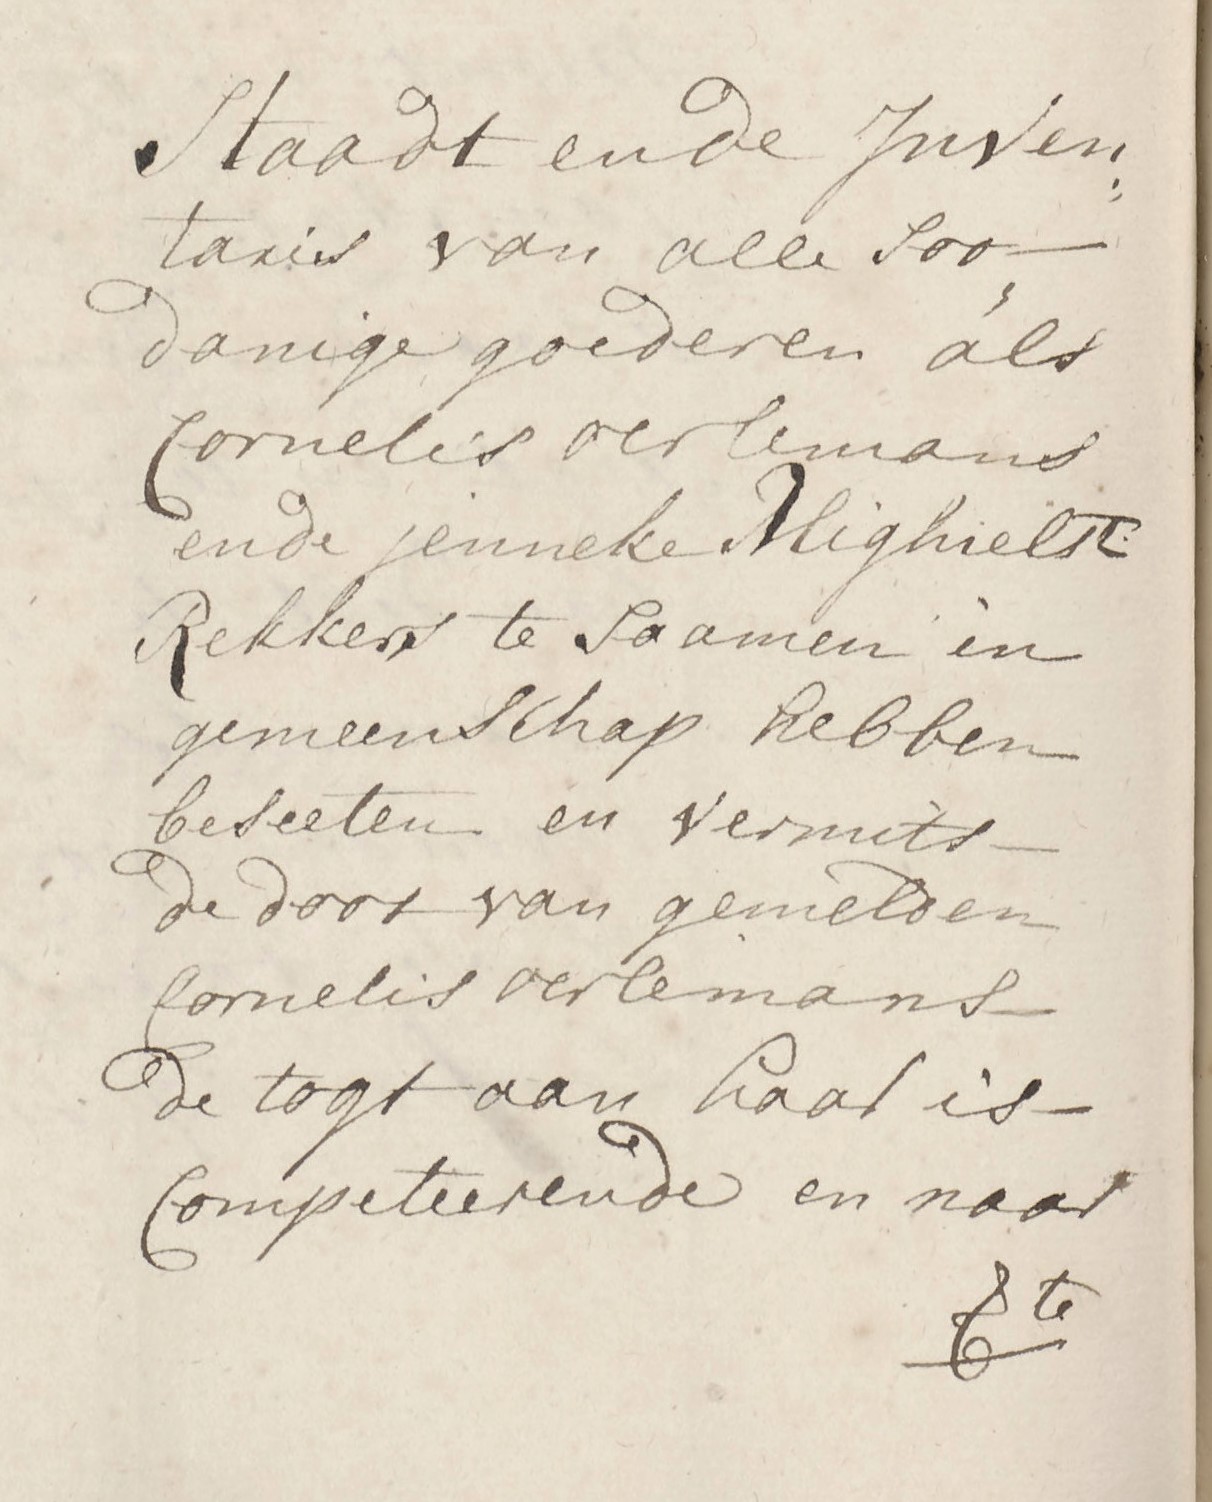 Staadt ende Inven,,
taris van alle Soo,,
danige goederen als
Cornelis oerlemans
ende jenneke Mighielse
Rekkers te Saamen in
gemeenschap hebben
beseeten en vermits
de doot van gemelden
Cornelis oerlemans
de togt aan haar is
Competeerende en naar
te